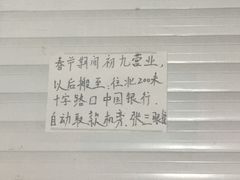 春节期间初九营业,
以后搬至.往北200米
十字路口中国银行.
自动取款机旁.张三